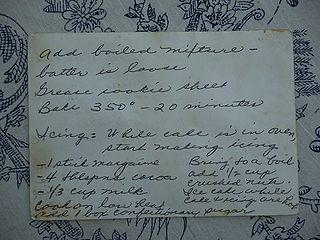 Add boiled mixture -
batter is loose
Grease cookie sheet
Bake 350° - 20 minutes
Icing = While cake is in oven,
start making icing
- 1 stick margarine
- 4 tblspns cocoa
- 1/3 cup milk
Cook on low heat
add 1 box confectionary sugar
Bring to a boil
add 1/2 cup
crushed nuts.
Ice cake while
cake & icing are hot